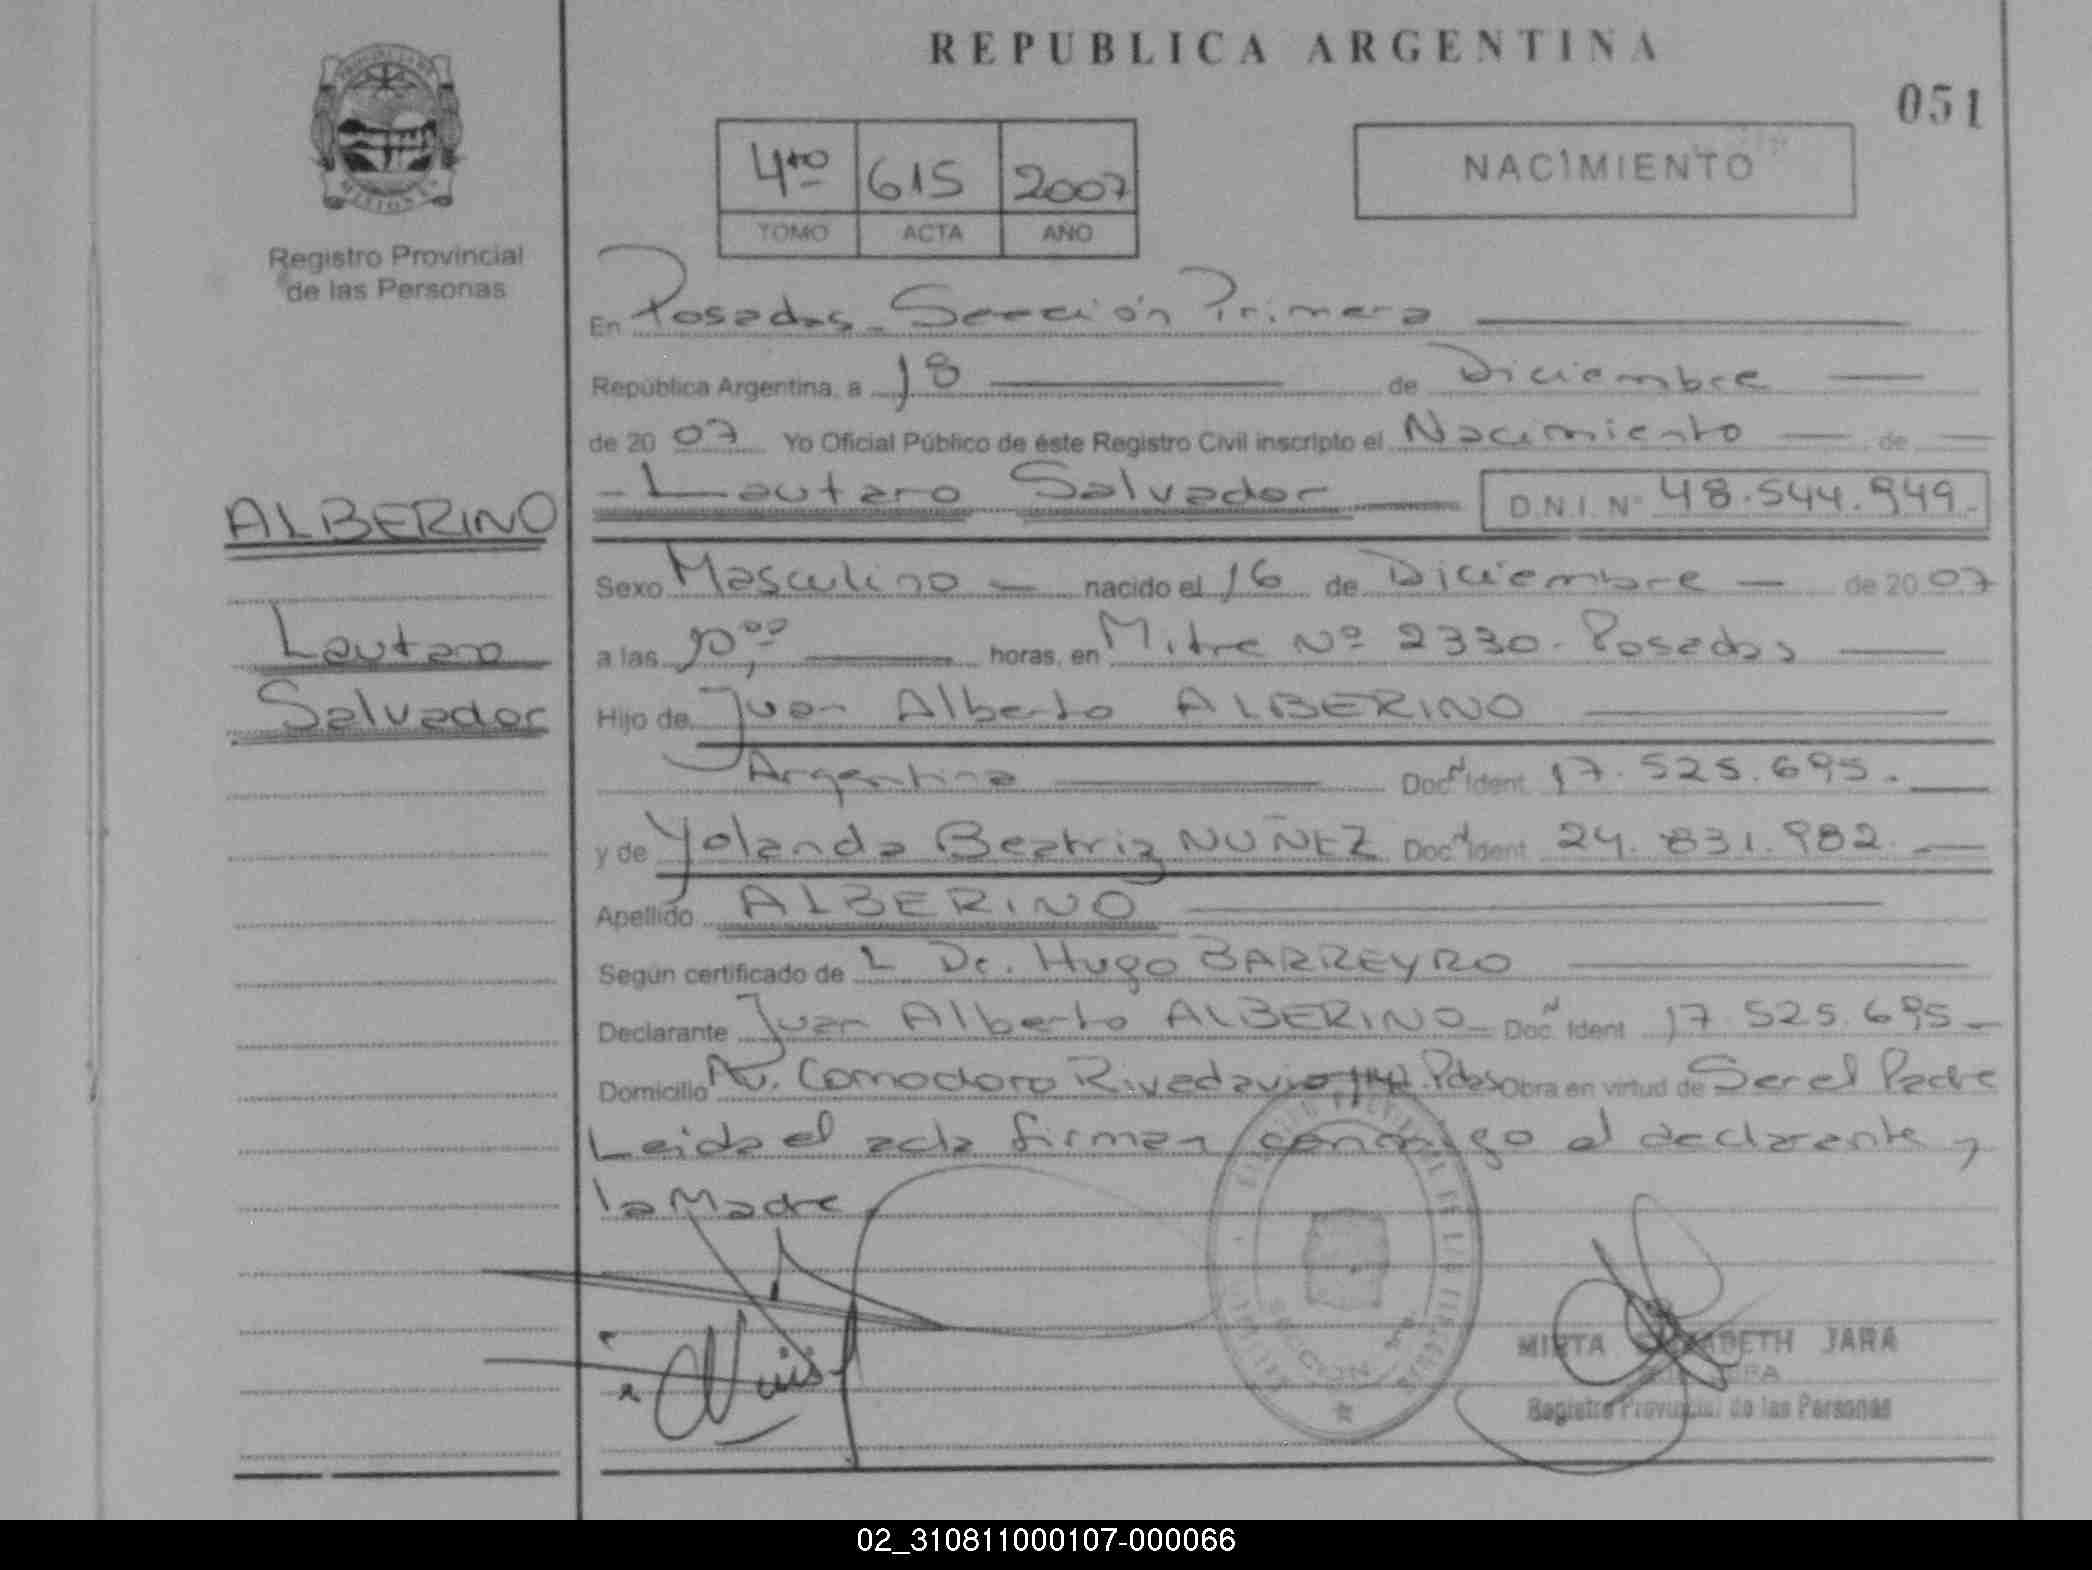 REPUBLICA ARGENTINA
051
4to 615 2007
TOMO ACTA AÑO
NACIMIENTO
MISIONES
Registro Provincial
de las Personas
En Posadas - Sección Primera
República Argentina, a 18 de Diciembre
de 2007 Yo Oficial Público de éste Registro Civil inscripto el Nacimiento de
- Lautaro Salvador D.N.I. Nº 48.544.949.-
ALBERINO
Lautaro
Salvador
Sexo Masculino nacido el 16 de Diciembre de 2007
a las 10,00 horas, en Mitre Nº 2330. Posadas
Hijo de Juan Alberto ALBERINO
Argentina Doc. Ident. 17.525.695.
y de Yolanda Beatriz NUÑEZ Doc. Ident. 24.831.982.
Apellido ALBERINO
Según certificado de L Dr. Hugo BARREYRO
Declarante Juan Alberto ALBERINO Doc. Ident. 17.525.695
Domicilio Av. Comodoro Rivadavia Pdas Obra en virtud de Ser el Padre
Leida el acta firman conmigo el declarante y
la Madre
MIRTA JARA
Registro Provincial de las Personas
02_310811000107-000066